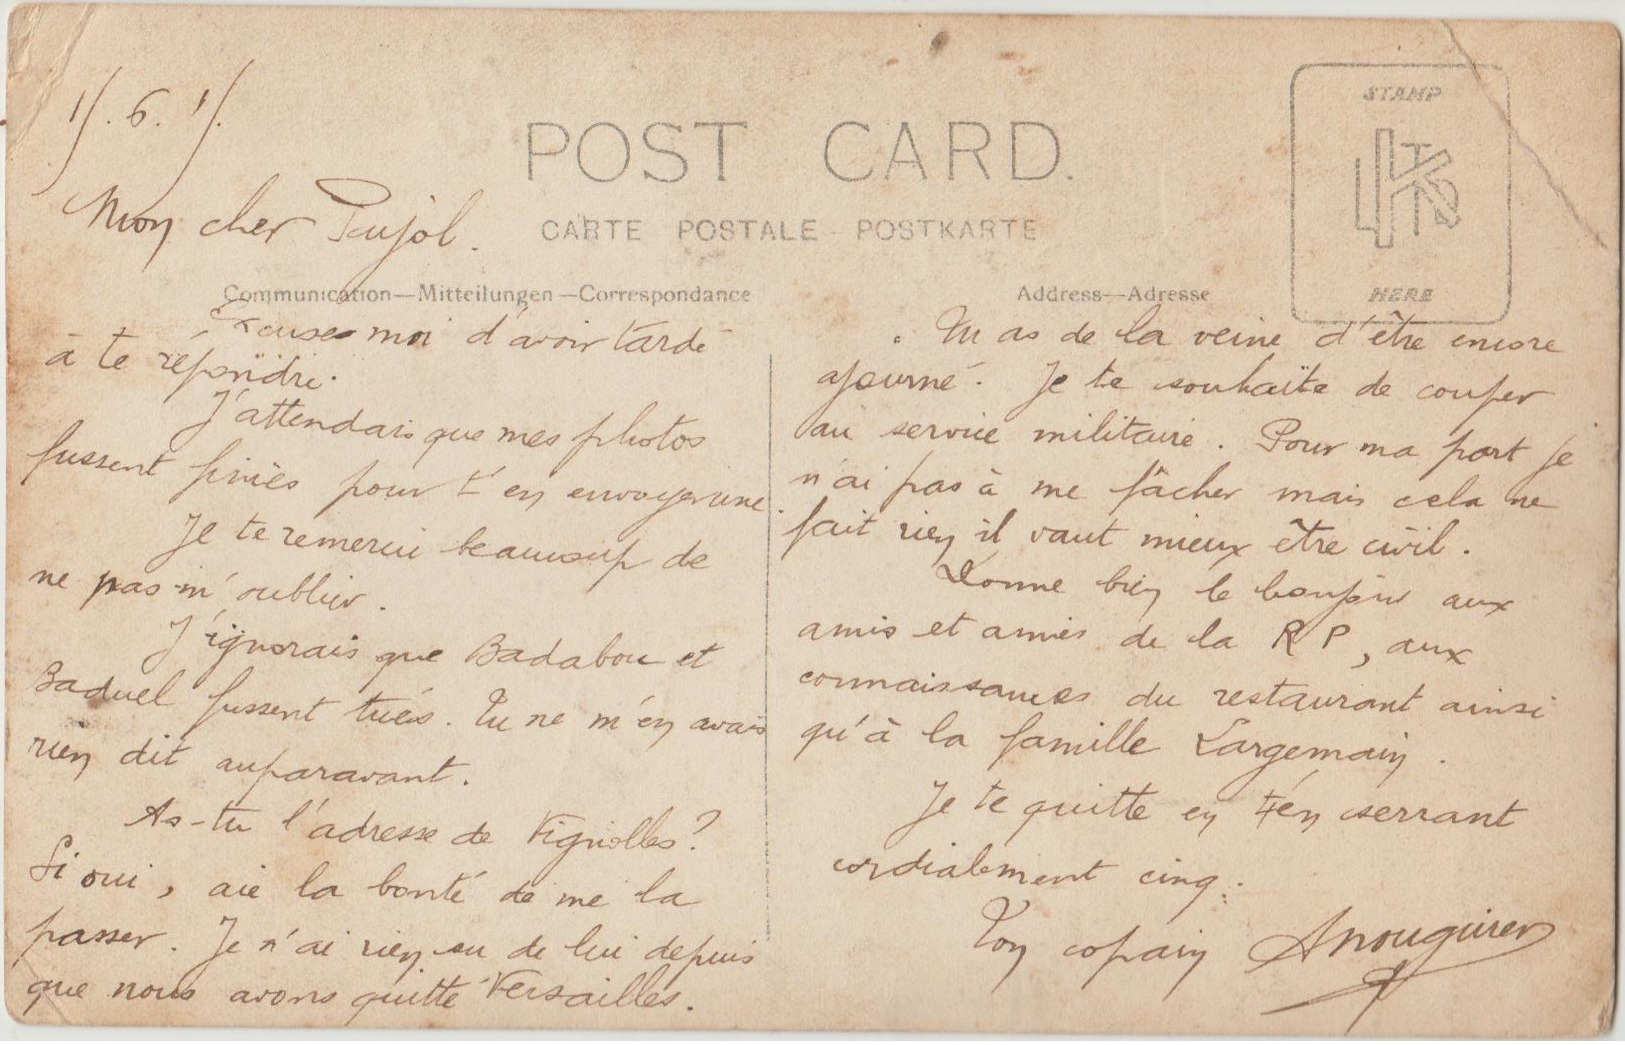 1/. 6. 1/.
POST CARD.
STAMP
HERE
Mon cher Pujol.
CARTE POSTALE - POSTKARTE
Communication—Mitteilungen—Correspondance
Excuses moi d'avoir tardé
à te répondre.
J'attendais que mes photos
fussent finies pour t'en envoyer une.
Je te remercie beaucoup de
ne pas m'oublier.
J'ignorais que Badabou et
Baduel fussent tués. Tu ne m'en avais
rien dit auparavant.
As-tu l'adresse de Vignolles?
Si oui, aie la bonté de me la
passer. Je n'ai rien su de lui depuis
que nous avons quitté Versailles.
Address—Adresse
Tu as de la veine d'être encore
ajourné. Je te souhaite de couper
au service militaire. Pour ma part je
n'ai pas à me fâcher mais cela ne
fait rien il vaut mieux être civil.
Donne bien le bonjour aux
amis et amies de la R P, aux
connaissances du restaurant ainsi
qu'à la famille Largemain.
Je te quitte en t'en serrant
cordialement cinq.
Ton copain